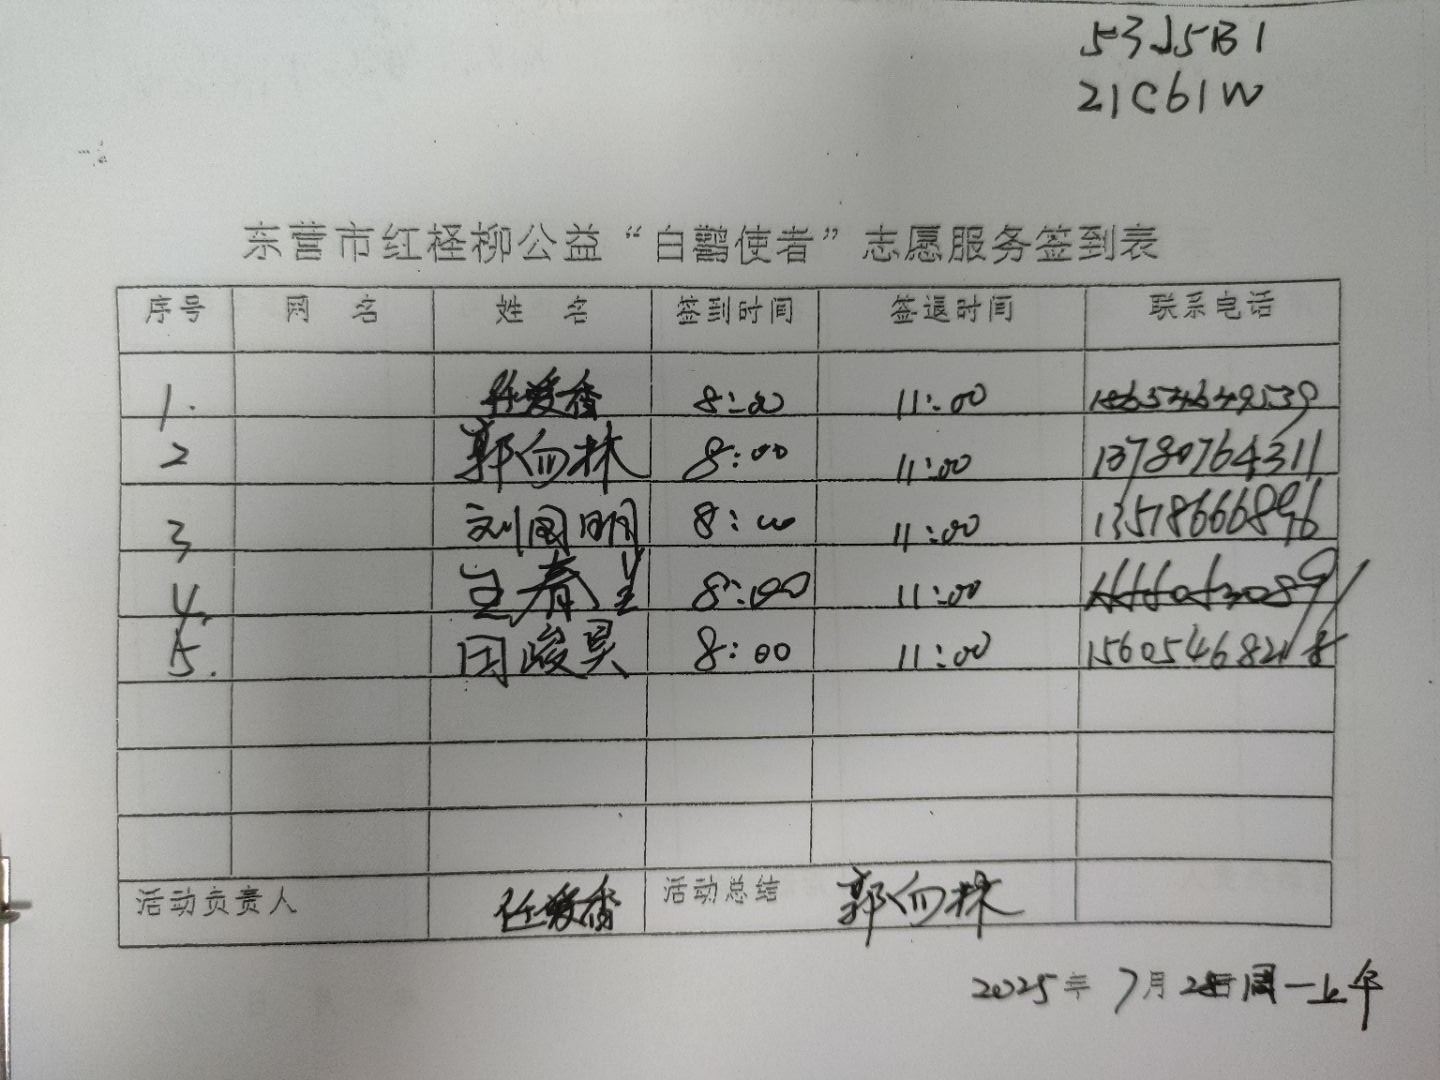 53J5B1
21C61W
东营市红柽柳公益“白鹳使者”志愿服务签到表
序号 网 名 姓 名 签到时间 签退时间 联系电话
1. 任爱香 8:00 11:00 18654649539
2 郭向林 8:00 11:00 13780764311
3 刘国明 8:00 11:00 13518666896
4. 王春 8:00 11:00
5. 田峻昊 8:00 11:00
活动负责人 任爱香 活动总结 郭向林
2025年 7月28日周一上午